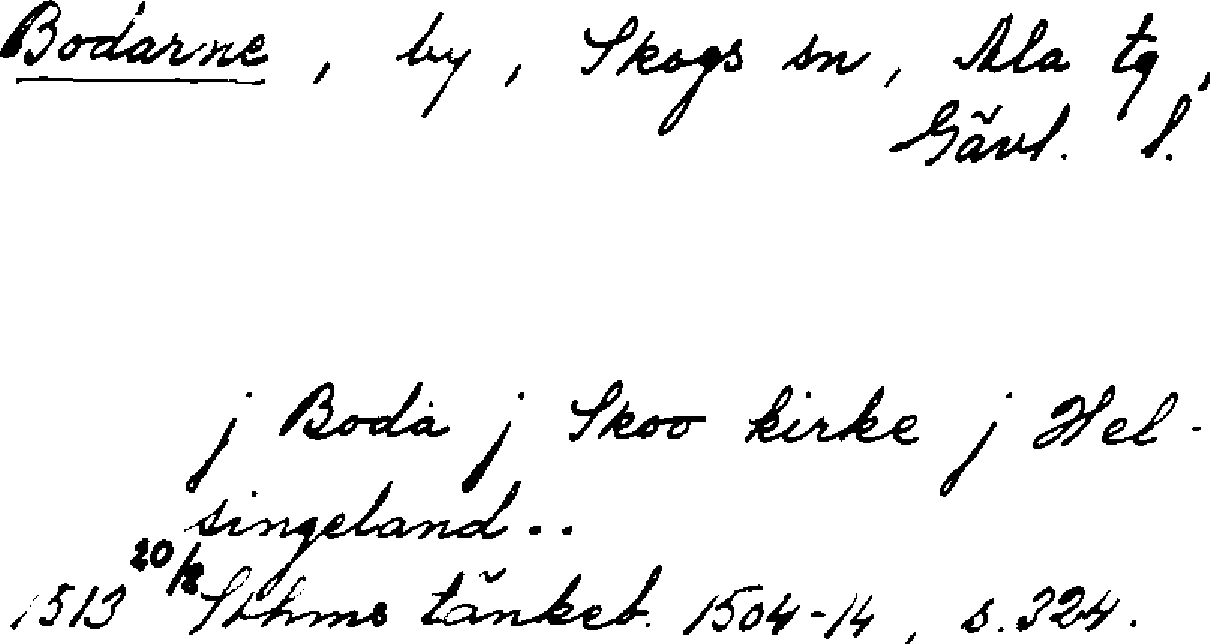 Bodarne, by, Skogs sn, Ala tg,
Gävl. l.
j Boda j Skoo kirke j Hel-
singeland..
1513 20/8 Sthms tänkeb. 1504-14, s. 324.